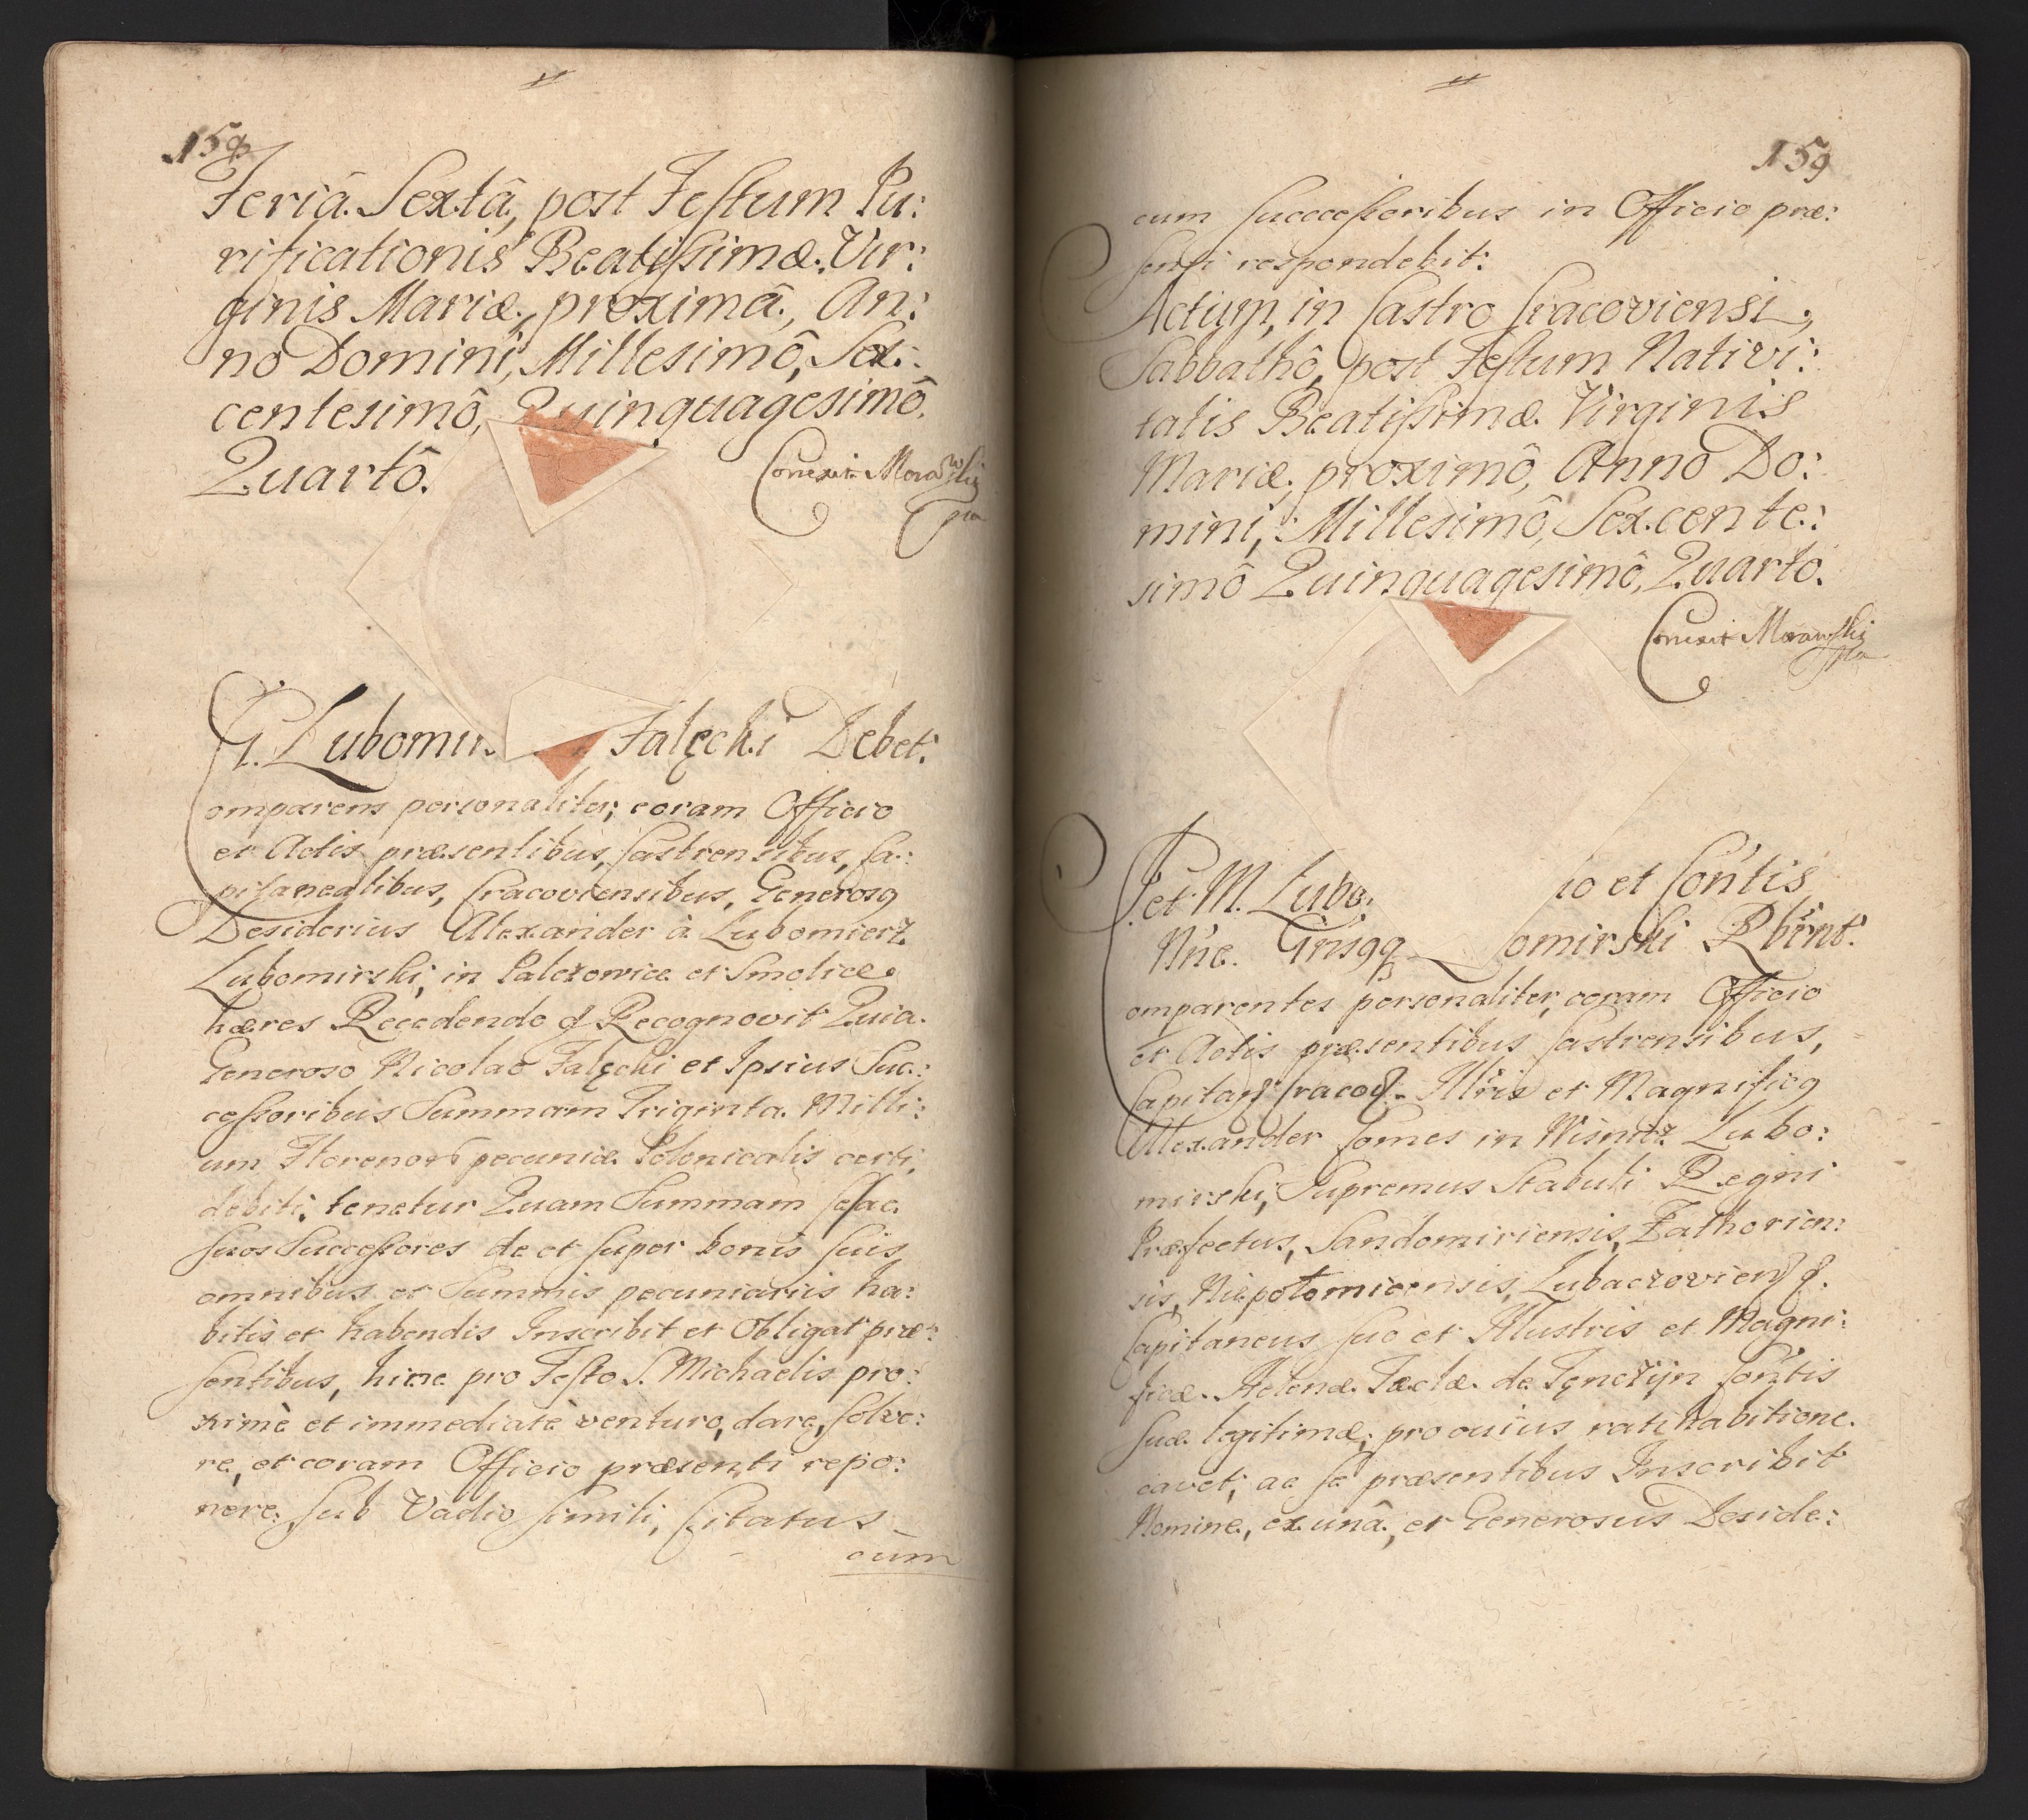 158
Feriâ Sextâ, post Festum Pu:
rificationis Beatissimæ Vir:
ginis Mariæ, proximâ, An:
no Domini, Millesimô, Sex:
centesimô, Quinquagesimô
Quartô.
Correxit Morawski
G. Lubomir Falęcki Debet:
omparens personaliter, coram Officio
et Actis præsentibus, Castrensibus, Ca:
pitanealibus, Cracoviensibus, Generosq
Desiderius Alexander à Lubomierz
Lubomirski, in Palczowice et Smolice
hæres Recedendo Recognovit Quia
Generoso Nicolao Falęcki et Ipsius Suc:
cessoribus Summam Triginta Milli:
um Florenor pecuniæ Polonicalis certi,
debiti, tenetur Quam Summam se ac
suos Successores de et super bonis suis
omnibus et Summis pecuniariis ha:
bitis et habendis Inscribit et Obligat præ:
sentibus, hinc pro Festo S. Michaelis pro:
ximè et immediatè venturo, dare, solve:
re, et coram Officio præsenti repo:
nere, sub Vadio simili, Citatus
cum
159
cum successoribus in Officio præ:
senti respondebit:
Actum, in Castro Cracoviensi,
Sabbathô, post Festum Nativi:
tatis Beatissimæ Virginis
Mariæ, proximô, Anno Do:
mini, Millesimô, Sexcente:
simô Quinquagesimô, Quarto.
Correxit Morawski
J. et M. Lubo. io et Contis
Nne. Gnsqq omirski Rbrnt.
omparentes personaliter, coram Officio
et Actis præsentibus Castrensibus,
Capitan Cracov. Illris et Magnificq
Alexander Comes in Wisnicz Lubo:
mirski, Supremus Stabuli Regni
Præfectus, Sandomiriensis, Zathorien:
sis, Niepolomicensis, Lubaczovien
Capitaneus suo et Illustris et Magni:
ficæ Helenæ Teclæ de Tęnczÿn Contis
suæ legitimæ, pro cuius ratihabitione
cavet, ac se præsentibus Inscribit
Nomine, ex unâ, et Generosus Deside: